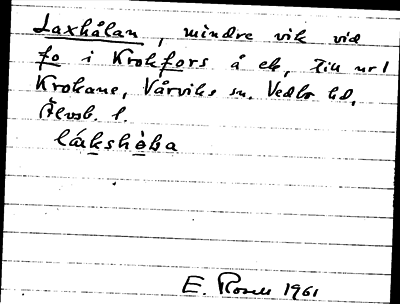 Laxhålan, mindre vik vid
fo i Krokfors å ek,
Krokane, Vårviks sn. Vedbo hd,
Älvsb. l.
lákshòba
E. Rosell 1961